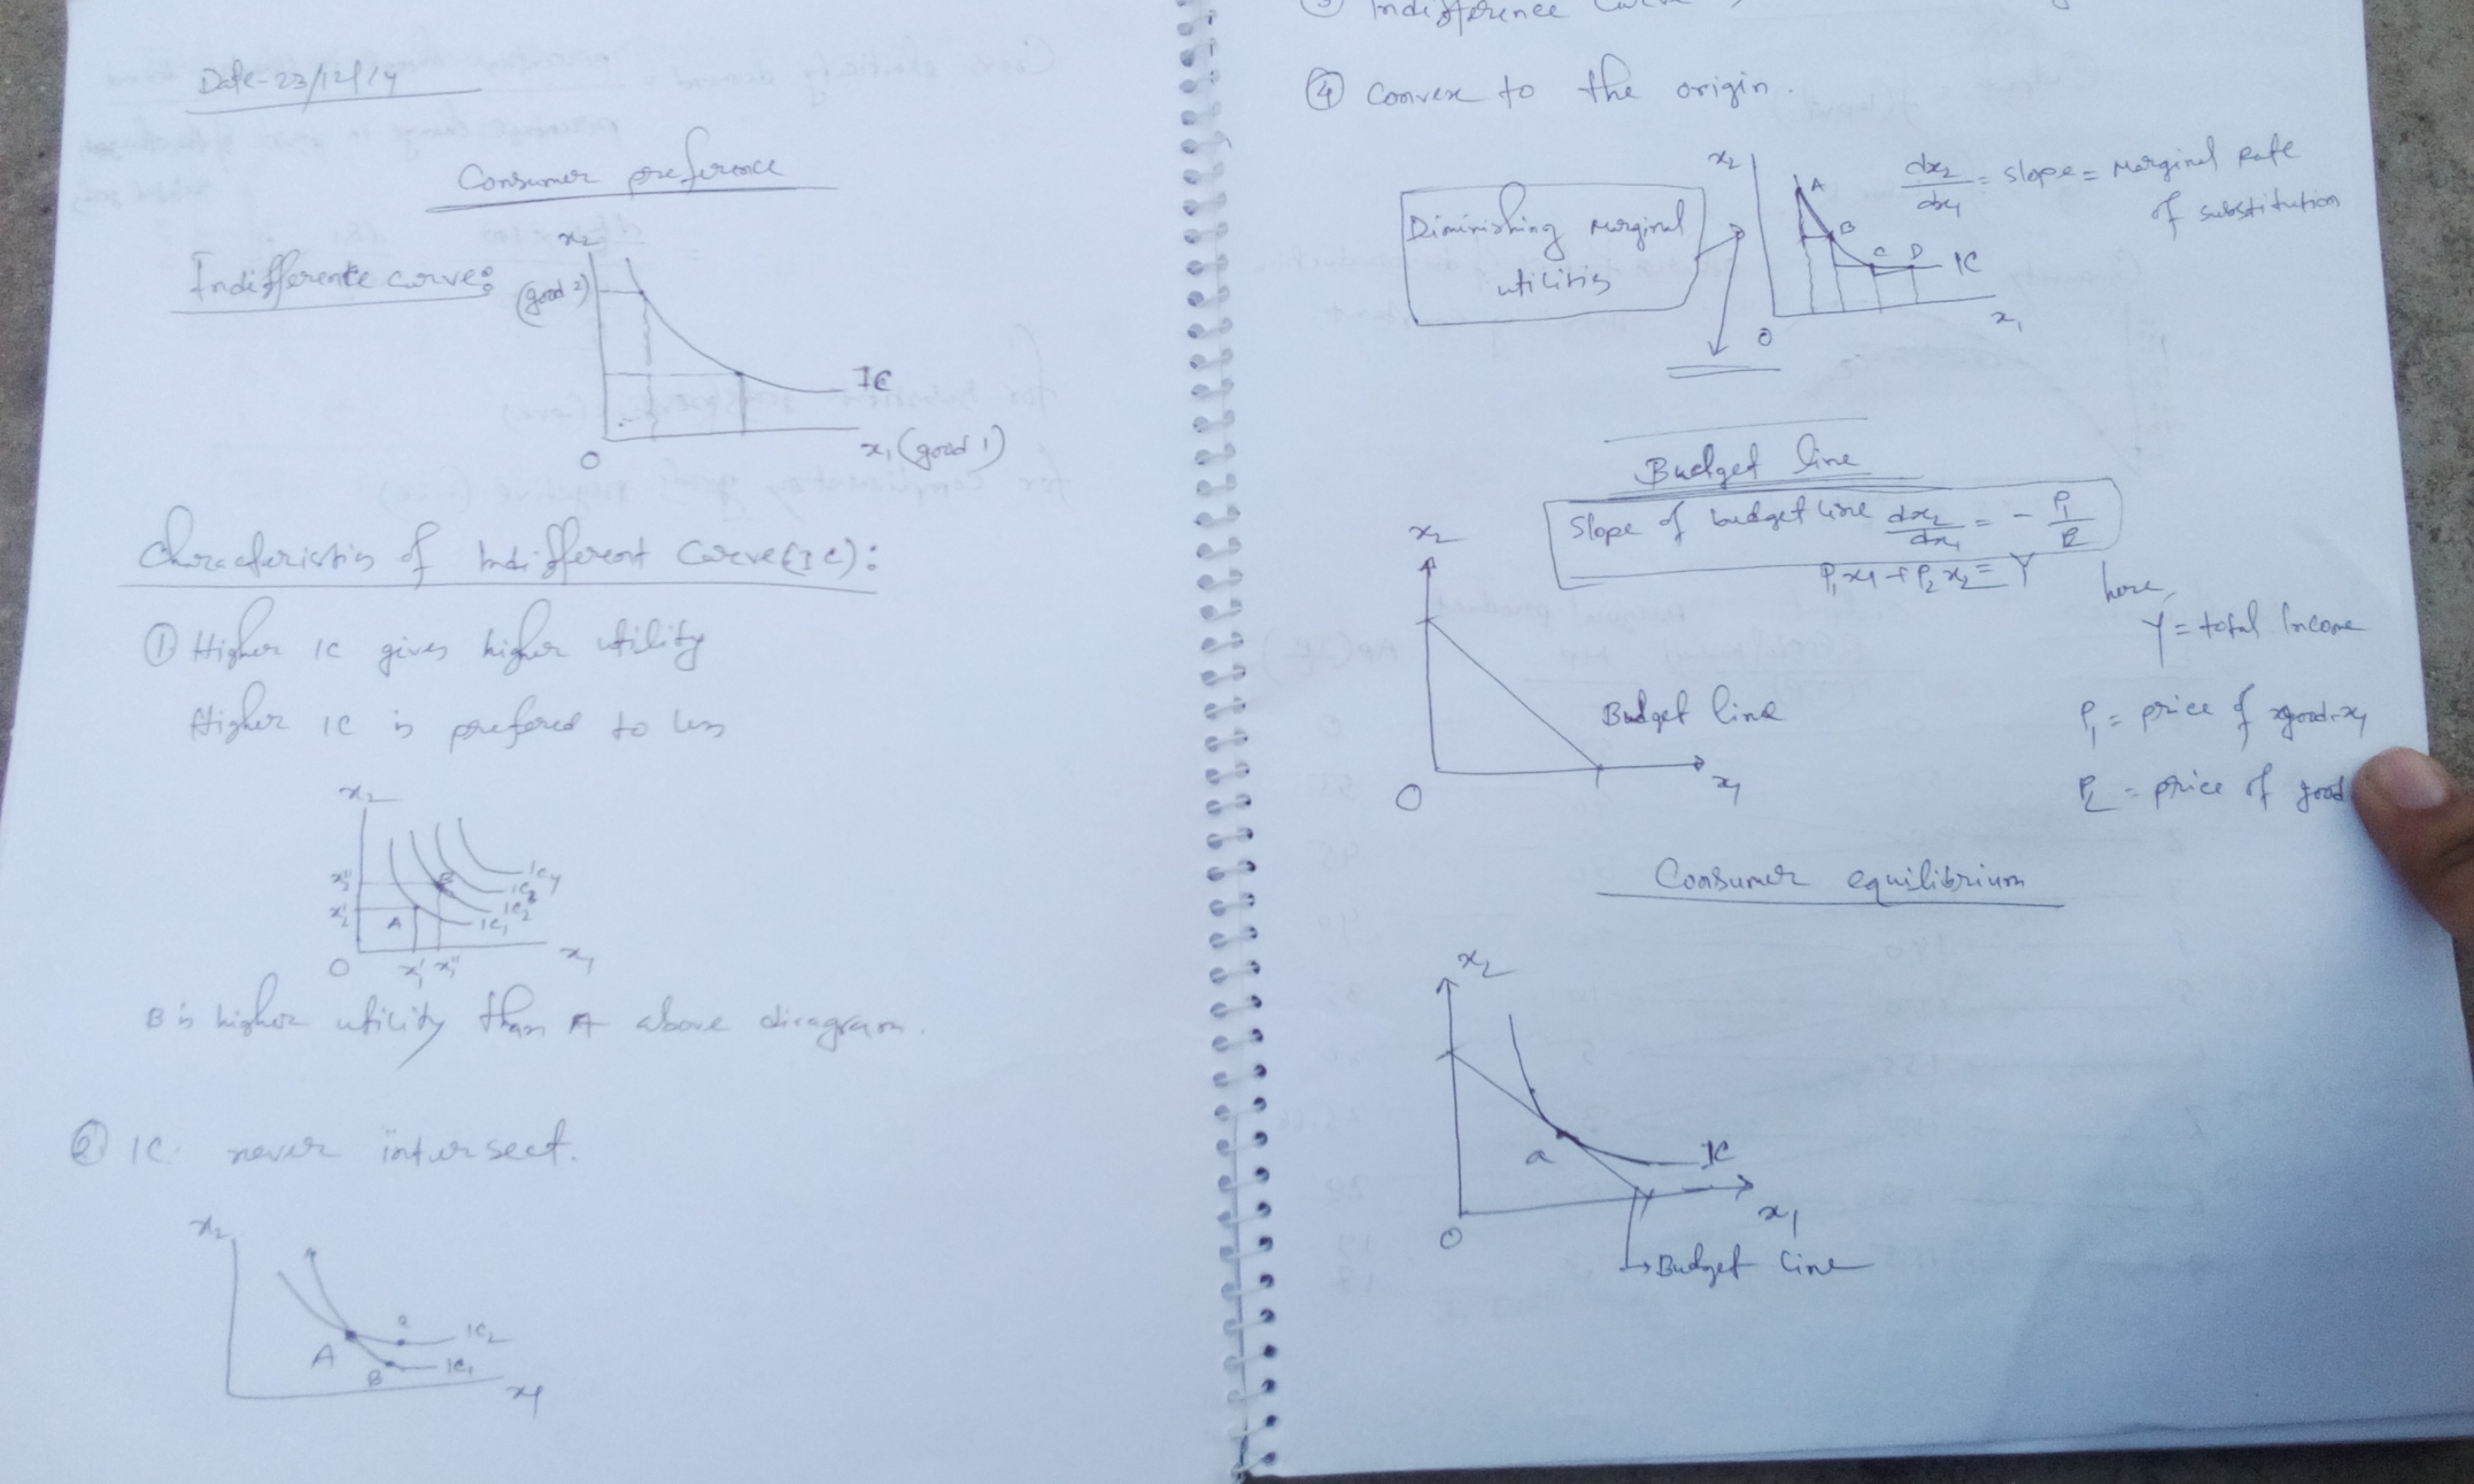 Date-23/12/14
Consumer preference
Indifference curve:
x2
(good 2)
IC
O
x1 (good 1)
Characteristics of Indifferent Curve (IC):
① Higher IC gives higher utility
Higher IC is prefered to less
x2
x2''
x2'
A
B
IC4
IC3
IC2
IC1
O
x1' x1''
x1
B is higher utility than A above diragram.
② IC. never intersect.
x2
A
B
IC2
IC1
x1
③ Indifference Curve
④ Convex to the origin.
Diminishing marginal
utilities
x2
A
B
C
D
IC
O
x1
dx2/dx1 = slope = Marginal Rate
of substitution
Budget line
Slope of budget line dx2/dx1 = - P1/P2
P1x1 + P2x2 = Y
here,
Y = total Income
P1 = price of good-x1
P2 = price of good
x2
Budget line
O
x1
Consumer equilibrium
x2
a
IC
O
x1
Budget line